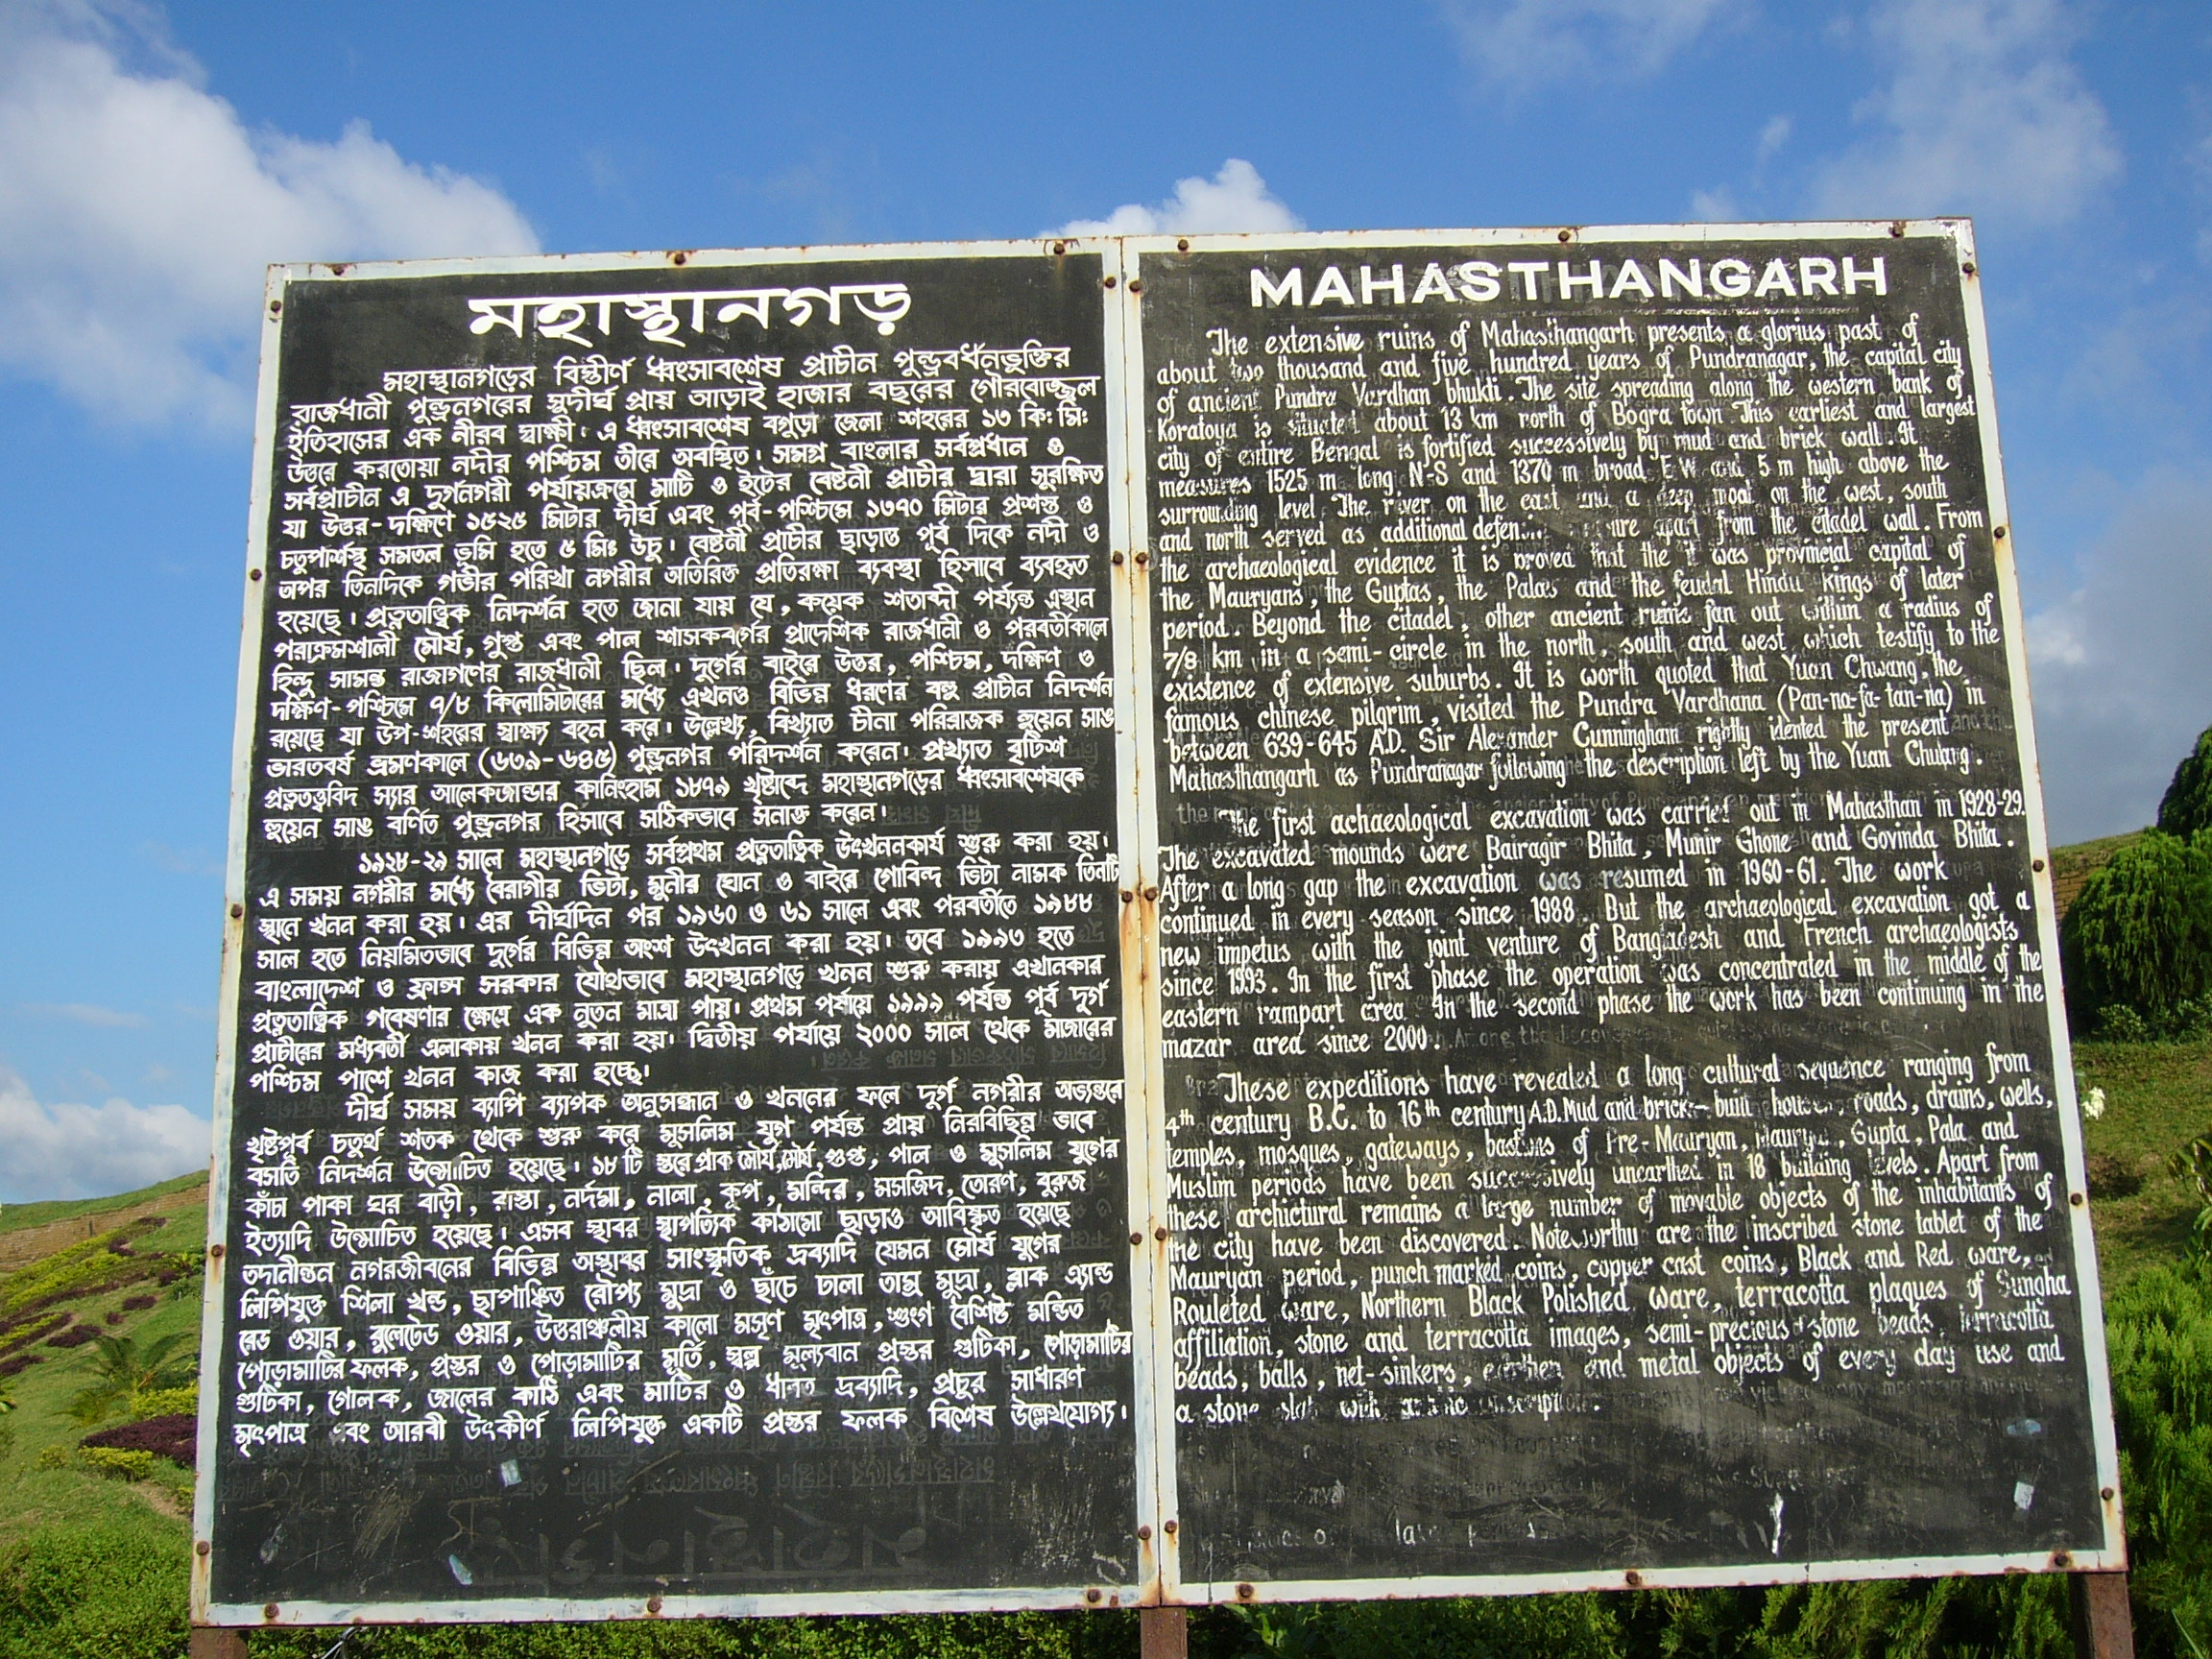 মহাস্থানগড়
মহাস্থানগড়ের বিস্তীর্ণ ধ্বংসাবশেষ প্রাচীন পুন্ড্রবর্ধনভুক্তির
রাজধানী পুন্ড্রনগরের সুদীর্ঘ প্রায় আড়াই হাজার বছরের গৌরবোজ্জ্বল
ইতিহাসের এক নীরব স্বাক্ষী। এ ধ্বংসাবশেষ বগুড়া জেলা শহরের ১৩ কিঃ মিঃ
উত্তরে করতোয়া নদীর পশ্চিম তীরে অবস্থিত। সমগ্র বাংলার সর্বপ্রধান ও
সর্বপ্রাচীন এ দুর্গনগরী পর্যায়ক্রমে মাটি ও ইটের বেষ্টনী প্রাচীর দ্বারা সুরক্ষিত
যা উত্তর-দক্ষিণে ১৫২৫ মিটার দীর্ঘ এবং পূর্ব-পশ্চিমে ১৩৭০ মিটার প্রশস্ত ও
চতুপার্শস্থ সমতল ভূমি হতে ৫ মিঃ উচু। বেষ্টনী প্রাচীর ছাড়াও পূর্ব দিকে নদী ও
অপর তিনদিকে গভীর পরিখা নগরীর অতিরিক্ত প্রতিরক্ষা ব্যবস্থা হিসাবে ব্যবহৃত
হয়েছে। প্রত্নতাত্ত্বিক নিদর্শন হতে জানা যায় যে, কয়েক শতাব্দী পর্য্যন্ত এস্থান
পরাক্রমশালী মৌর্য, গুপ্ত এবং পাল শাসকবর্গের প্রাদেশিক রাজধানী ও পরবর্তীকালে
হিন্দু সামন্ত রাজাগণের রাজধানী ছিল। দুর্গের বাইরে উত্তর, পশ্চিম, দক্ষিণ ও
দক্ষিণ-পশ্চিমে ৭/৮ কিলোমিটারের মধ্যে এখনও বিভিন্ন ধরণের বহু প্রাচীন নিদর্শন
রয়েছে যা উপ-শহরের স্বাক্ষ্য বহন করে। উল্লেখ্য, বিখ্যাত চীনা পরিব্রাজক হুয়েন সাঙ
ভারতবর্ষ ভ্রমণকালে (৬৩৯-৬৪৫) পুন্ড্রনগর পরিদর্শন করেন। প্রখ্যাত বৃটিশ
প্রত্নতত্ত্ববিদ স্যার আলেকজান্ডার কানিংহাম ১৮৭৯ খৃষ্টাব্দে মহাস্থানগড়ের ধ্বংসাবশেষকে
হুয়েন সাঙ বর্ণিত পুন্ড্রনগর হিসাবে সঠিকভাবে সনাক্ত করেন।
১৯২৮-২৯ সালে মহাস্থানগড়ে সর্বপ্রথম প্রত্নতাত্বিক উৎখননকার্য শুরু করা হয়।
এ সময় নগরীর মধ্যে বৈরাগীর ভিটা, মুনীর ঘোন ও বাইরে গোবিন্দ ভিটা নামক তিনটি
স্থানে খনন করা হয়। এর দীর্ঘদিন পর ১৯৬০ ও ৬১ সালে এবং পরবর্তীতে ১৯৮৮
সাল হতে নিয়মিতভাবে দুর্গের বিভিন্ন অংশ উৎখনন করা হয়। তবে ১৯৯৩ হতে
বাংলাদেশ ও ফ্রান্স সরকার যৌথভাবে মহাস্থানগড়ে খনন শুরু করায় এখানকার
প্রত্নতাত্বিক গবেষণার ক্ষেত্রে এক নুতন মাত্রা পায়। প্রথম পর্যায়ে ১৯৯৯ পর্যন্ত পূর্ব দুর্গ
প্রাচীরের মধ্যবর্তী এলাকায় খনন করা হয়। দ্বিতীয় পর্যায়ে ২০০০ সাল থেকে মাজারের
পশ্চিম পাশে খনন কাজ করা হচ্ছে।
দীর্ঘ সময় ব্যাপি ব্যাপক অনুসন্ধান ও খননের ফলে দুর্গ নগরীর অভ্যন্তরে
খৃষ্টপূর্ব চতুর্থ শতক থেকে শুরু করে মুসলিম যুগ পর্যন্ত প্রায় নিরবিছিন্ন ভাবে
বসতি নিদর্শন উন্মোচিত হয়েছে। ১৮ টি স্তরে প্রাক মৌর্য, মৌর্য, গুপ্ত, পাল ও মুসলিম যুগের
কাঁচা পাকা ঘর বাড়ী, রাস্তা, নর্দমা, নালা, কূপ, মন্দির, মসজিদ, তোরণ, বুরুজ
ইত্যাদি উন্মোচিত হয়েছে। এসব স্থাবর স্থাপত্যিক কাঠামো ছাড়াও আবিষ্কৃত হয়েছে
তদানীন্তন নগরজীবনের বিভিন্ন অস্থাবর সাংস্কৃতিক দ্রব্যাদি যেমন মৌর্য যুগের
লিপিযুক্ত শিলা খন্ড, ছাপাঙ্কিত রৌপ্য মুদ্রা ও ছাঁচে ঢালা তাম্র মুদ্রা, ব্লাক এ্যান্ড
রেড ওয়ার, রুলেটেড ওয়ার, উত্তরাঞ্চলীয় কালো মসৃণ মৃৎপাত্র, শুংগ বৈশিষ্ট মন্ডিত
পোড়ামাটির ফলক, প্রস্তর ও পোড়ামাটির মূর্তি, স্বল্প মূল্যবান প্রস্তর গুটিকা, পোড়ামাটির
গুটিকা, গোলক, জালের কাঠি এবং মাটির ও ধাতব দ্রব্যাদি, প্রচুর সাধারণ
মৃৎপাত্র এবং আরবী উৎকীর্ণ লিপিযুক্ত একটি প্রস্তর ফলক বিশেষ উল্লেখযোগ্য।
MAHASTHANGARH
The extensive ruins of Mahasthangarh presents a glorius past of
about two thousand and five hundred years of Pundranagar, the capital city
of ancient Pundra Vardhan bhukti. The site spreading along the western bank of
Koratoya is situated about 13 km north of Bogra town This earliest and largest
city of entire Bengal is fortified successively by mud and brick wall. It
measures 1525 m long N-S and 1370 m broad E W and 5 m high above the
surrounding level. The river on the east and a deep moat on the west, south
and north served as additional apart from the citadel wall. From
the archaeological evidence it is proved that the it was provincial capital of
the Mauryans, the Guptas, the Palas and the feudal Hindu kings of later
period. Beyond the citadel, other ancient ruins fan out within a radius of
7/8 km in a semi-circle in the north, south and west, which testify to the
existence of extensive suburbs. It is worth quoted that Yuan Chwang, the
famous chinese pilgrim, visited the Pundra Vardhana (Pan-na-fa-tan-na) in
between 639-645 A.D. Sir Alexander Cunningham rightly idented the present
Mahasthangarh as Pundranagar following the description left by the Yuan Chwang.
The first achaeological excavation was carried out in Mahasthan in 1928-29.
The excavated mounds were Bairagir Bhita, Munir Ghone and Govinda Bhita.
After a long gap the excavation was resumed in 1960-61. The work
continued in every season since 1988. But the archaeological excavation got a
new impetus with the joint venture of Bangladesh and French archaeologists
since 1993. In the first phase the operation was concentrated in the middle of the
eastern rampart area. In the second phase the work has been continuing in the
mazar area since 2000.
These expeditions have revealed a long cultural sequence ranging from
4th century B.C. to 16th century A.D. Mud and brick- built houses, roads, drains, wells,
temples, mosques, gateways, bastions of Pre-Mauryan, Mauryan, Gupta, Pala and
Muslim periods have been successively unearthed in 18 building levels. Apart from
these archictural remains a large number of movable objects of the inhabitants of
the city have been discovered. Noteworthy are the inscribed stone tablet of the
Mauryan period, punch marked coins, copper cast coins, Black and Red ware,
Rouleted ware, Northern Black Polished ware, terracotta plaques of Sungha
affiliation, stone and terracotta images, semi-precious stone beads, terracotta
beads, balls, net-sinkers, earthen and metal objects of every day use and
a stone slab with